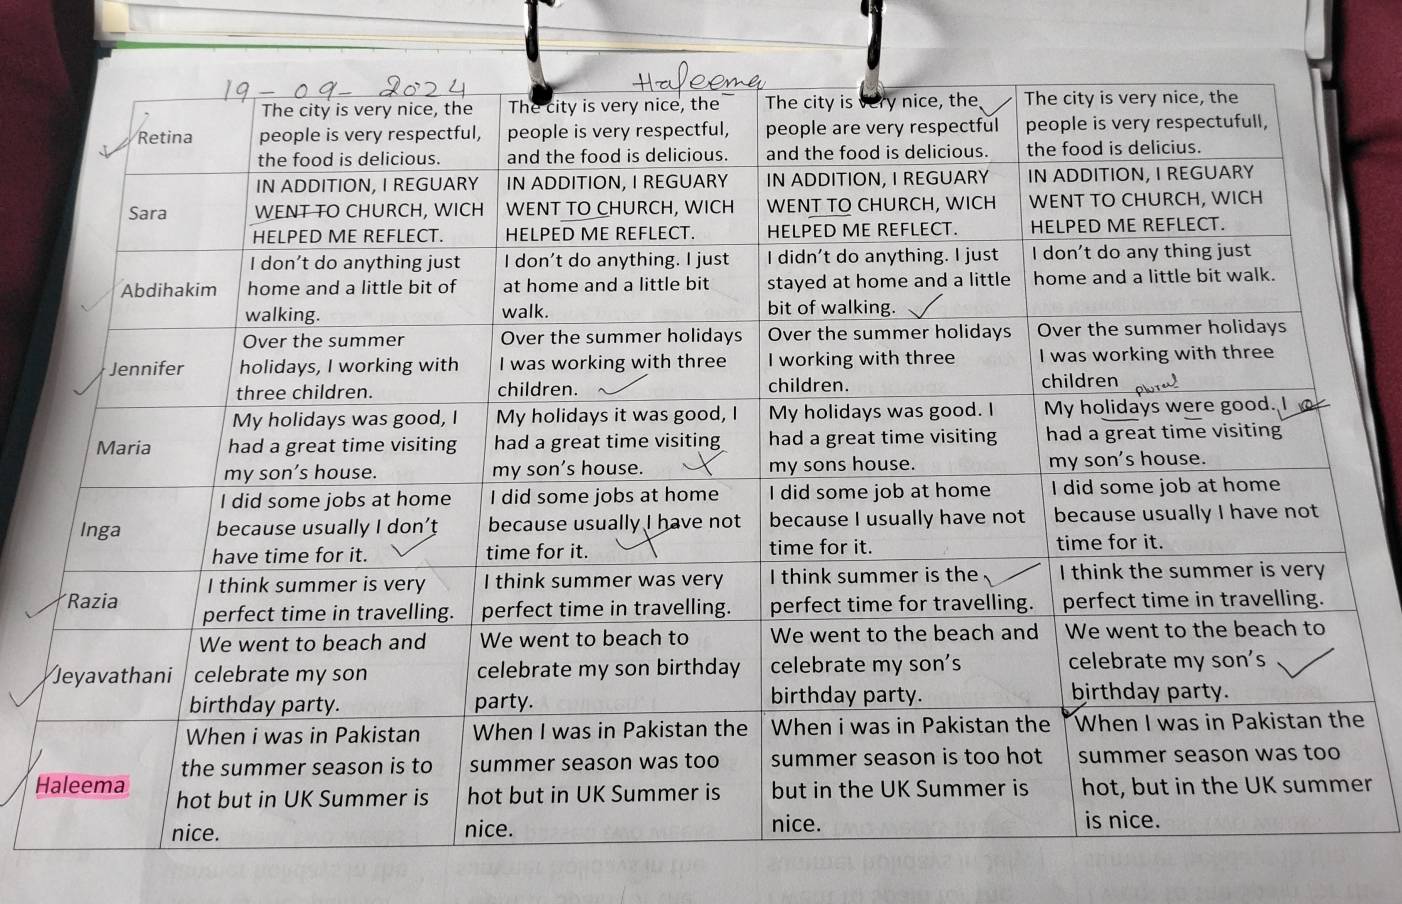 19-09-2024
Haleema
Retina
The city is very nice, the
people is very respectful,
the food is delicious.
The city is very nice, the
people is very respectful,
and the food is delicious.
The city is very nice, the
people are very respectful
and the food is delicious.
The city is very nice, the
people is very respectufull,
the food is delicius.
Sara
IN ADDITION, I REGUARY
WENT TO CHURCH, WICH
HELPED ME REFLECT.
IN ADDITION, I REGUARY
WENT TO CHURCH, WICH
HELPED ME REFLECT.
IN ADDITION, I REGUARY
WENT TO CHURCH, WICH
HELPED ME REFLECT.
IN ADDITION, I REGUARY
WENT TO CHURCH, WICH
HELPED ME REFLECT.
Abdihakim
I don't do anything just
home and a little bit of
walking.
I don't do anything. I just
at home and a little bit
walk.
I didn't do anything. I just
stayed at home and a little
bit of walking.
I don't do any thing just
home and a little bit walk.
Jennifer
Over the summer
holidays, I working with
three children.
Over the summer holidays
I was working with three
children.
Over the summer holidays
I working with three
children.
Over the summer holidays
I was working with three
children
plural
Maria
My holidays was good, I
had a great time visiting
my son's house.
My holidays it was good, I
had a great time visiting
my son's house.
My holidays was good. I
had a great time visiting
my sons house.
My holidays were good. I
had a great time visiting
my son's house.
Inga
I did some jobs at home
because usually I don't
have time for it.
I did some jobs at home
because usually I have not
time for it.
I did some job at home
because I usually have not
time for it.
I did some job at home
because usually I have not
time for it.
Razia
I think summer is very
perfect time in travelling.
I think summer was very
perfect time in travelling.
I think summer is the
perfect time for travelling.
I think the summer is very
perfect time in travelling.
Jeyavathani
We went to beach and
celebrate my son
birthday party.
We went to beach to
celebrate my son birthday
party.
We went to the beach and
celebrate my son's
birthday party.
We went to the beach to
celebrate my son's
birthday party.
Haleema
When i was in Pakistan
the summer season is to
hot but in UK Summer is
nice.
When I was in Pakistan the
summer season was too
hot but in UK Summer is
nice.
When i was in Pakistan the
summer season is too hot
but in the UK Summer is
nice.
When I was in Pakistan the
summer season was too
hot, but in the UK summer
is nice.